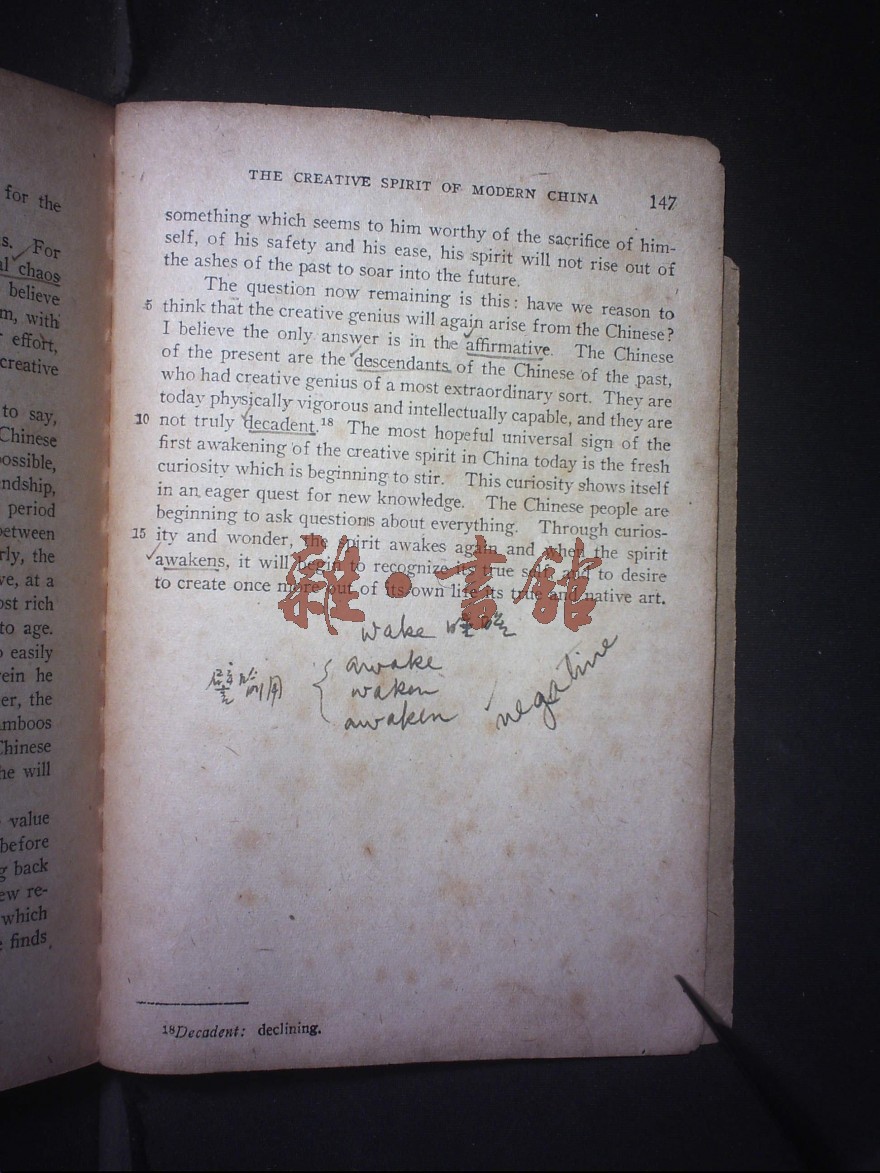 for the
s. For
al chaos
believe
m, with
effort,
creative
to say,
Chinese
ossible,
ndship,
period
between
rly, the
ve, at a
ost rich
to age.
o easily
rein he
er, the
amboos
Chinese
he will
value
before
g back
ew re-
which
finds,
THE CREATIVE SPIRIT OF MODERN CHINA 147
something which seems to him worthy of the sacrifice of him-
self, of his safety and his ease, his spirit will not rise out of
the ashes of the past to soar into the future.
The question now remaining is this: have we reason to
5 think that the creative genius will again arise from the Chinese?
I believe the only answer is in the affirmative. The Chinese
of the present are the descendants of the Chinese of the past,
who had creative genius of a most extraordinary sort. They are
today physically vigorous and intellectually capable, and they are
10 not truly decadent.18 The most hopeful universal sign of the
first awakening of the creative spirit in China today is the fresh
curiosity which is beginning to stir. This curiosity shows itself
in an eager quest for new knowledge. The Chinese people are
beginning to ask questions about everything. Through curios-
15 ity and wonder, the spirit awakes again and when the spirit
awakens, it will begin to recognize its true self, and to desire
to create once more out of its own life its true and native art.
雜·書館
wake
awake
waken
awaken
negative
18Decadent: declining.